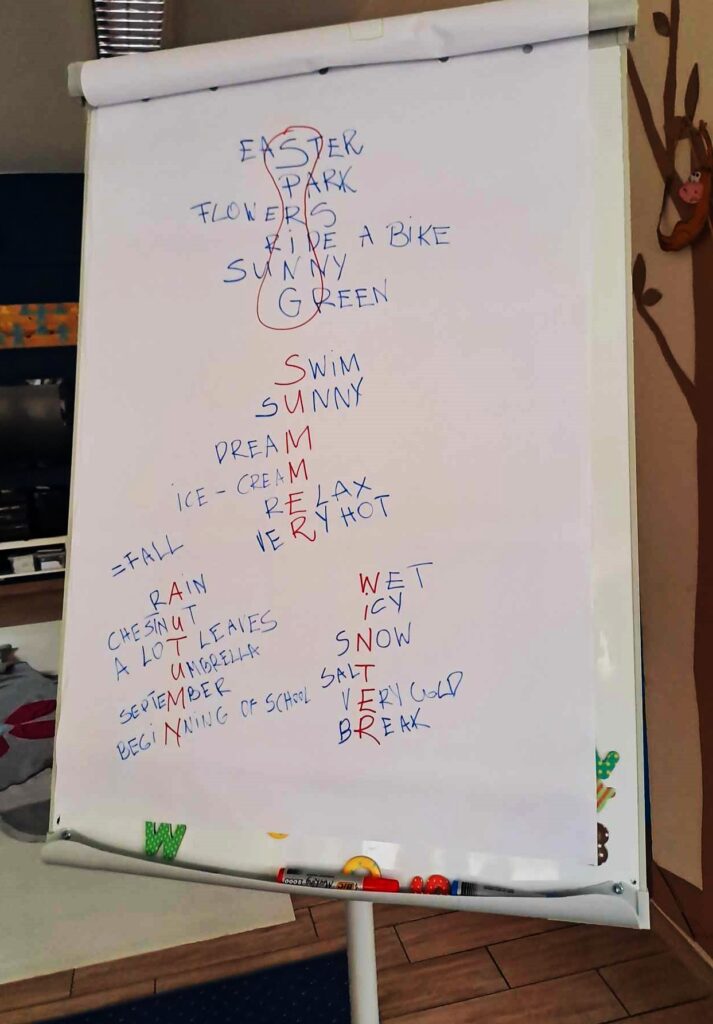 EASTER
PARK
FLOWERS
RiDE A BiKE
SUNNY
GREEN
SWiM
SUNNY
DREAM
iCE - CREAM
RELAX
VERY HOT
=FALL
RAiN
CHESTNUT
A LOT LEAVES
UMBRELLA
SEPTEMBER
BEGiNNiNG OF SCHOOL
WET
iCY
SNOW
SALT
VERY COLD
BREAK
W